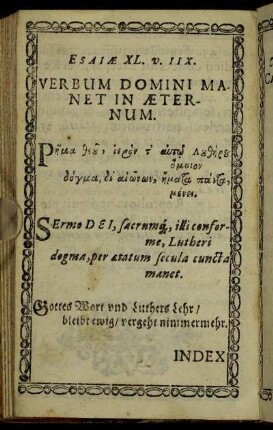 ESAIÆ XL. v. IIX.
VERBUM DOMINI MA-
NET IN ÆTER-
NUM.
Ρῆμα θεοῦ, ἱερόν τ' αὐτῷ Λυθήρȣ
ὅμοιον
δόγμα, δι' αἰώνων, ἤματα πάντα,
μένει.
SErmo DEI, sacrumq́, illi confor-
me, Lutheri
dogma, per ætatum secula cuncta
manet.
Gottes Wort vnd Luthers Lehr/
bleibt ewig/ vergeht nimmermehr.
INDEX